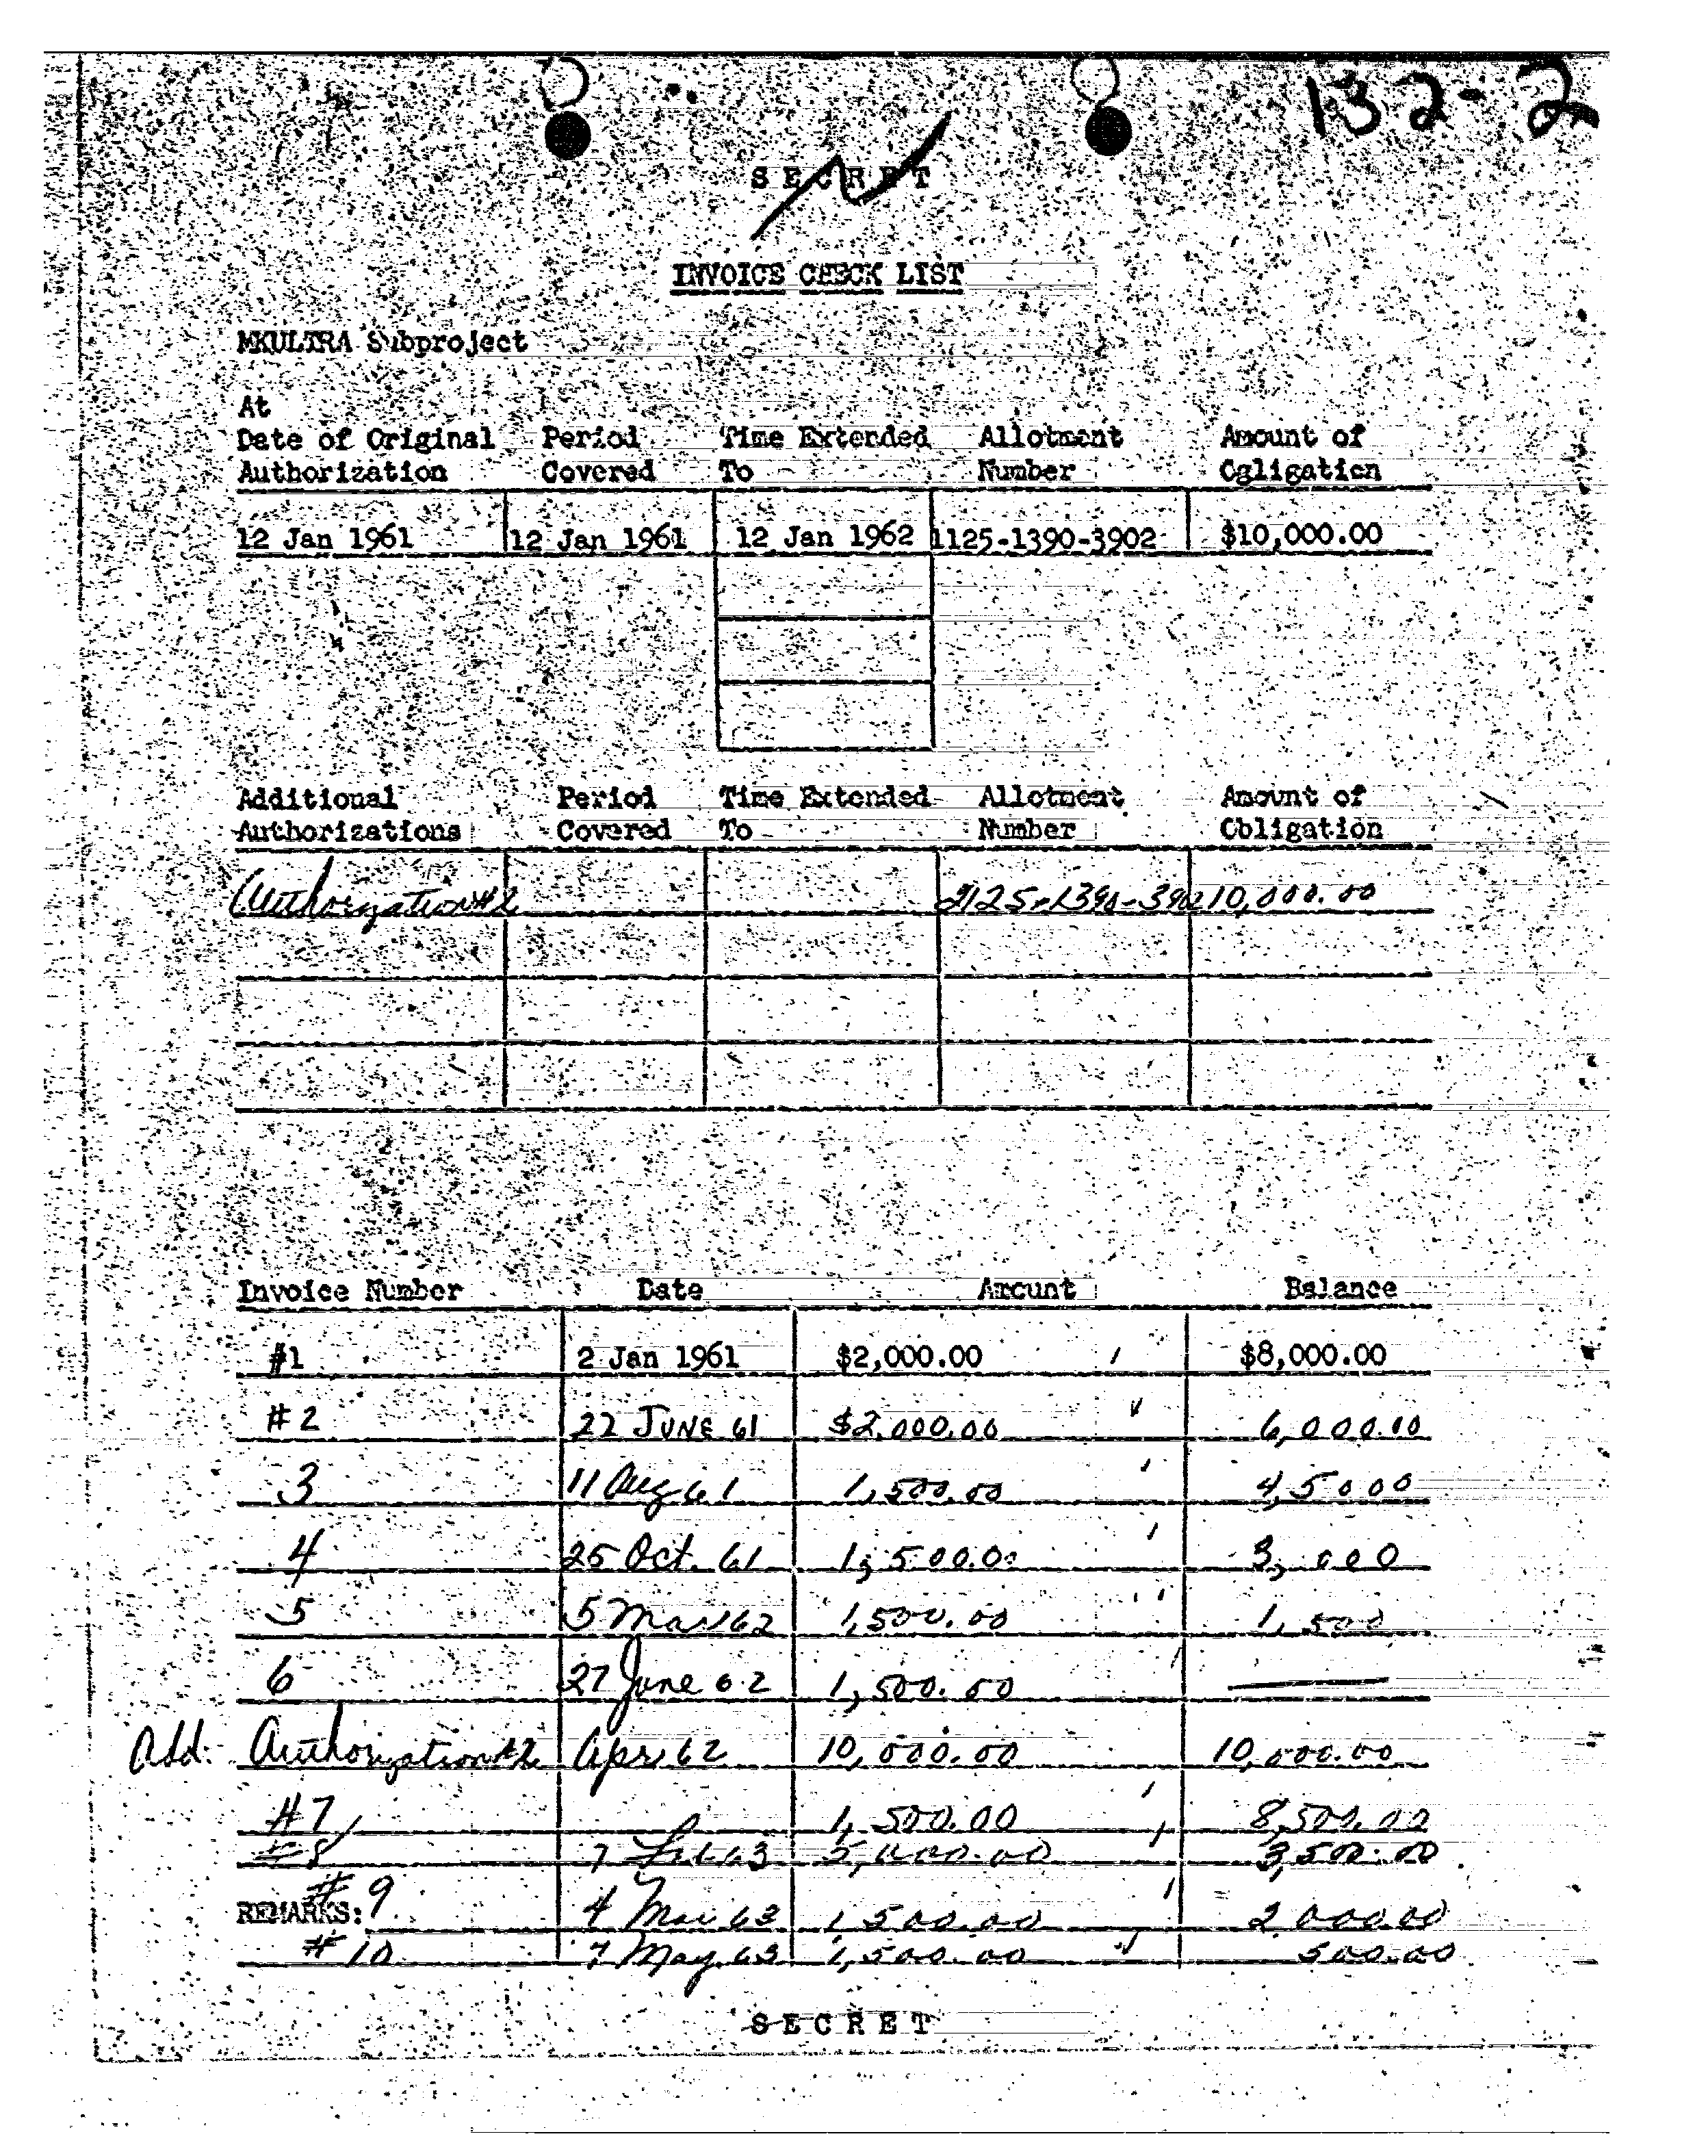 132-2
SECRET
INVOICE CHECK LIST
MKULTRA Subproject
At
Date of Original Period Time Extended Allotment Amount of
Authorization Covered To Number Ogligation
12 Jan 1961 12 Jan 1961 12 Jan 1962 1125-1390-3902 $10,000.00
Additional Period Time Extended Allotment Amount of
Authorizations Covered To Number Obligation
Authorization #2 2125-1390-3902 10,000.00
Invoice Number Date Amount Balance
#1 2 Jan 1961 $2,000.00 $8,000.00
#2 22 JUNE 61 $2,000.00 6,000.00
3 11 Aug 61 1,500.00 4,5000
4 25 Oct. 61 1,500.00 3,000
5 5 Mar 62 1,500.00 1,500
6 27 June 62 1,500.00
Add. Authorization #2 Apr 62 10,000.00 10,000.00
#7 1,500.00 8,500.00
#8 7 Feb 63 5,000.00 3,500.00
REMARKS: #9 4 Mar 63 1,500.00 2000.00
#10 7 May 63 1,500.00 500.00
SECRET